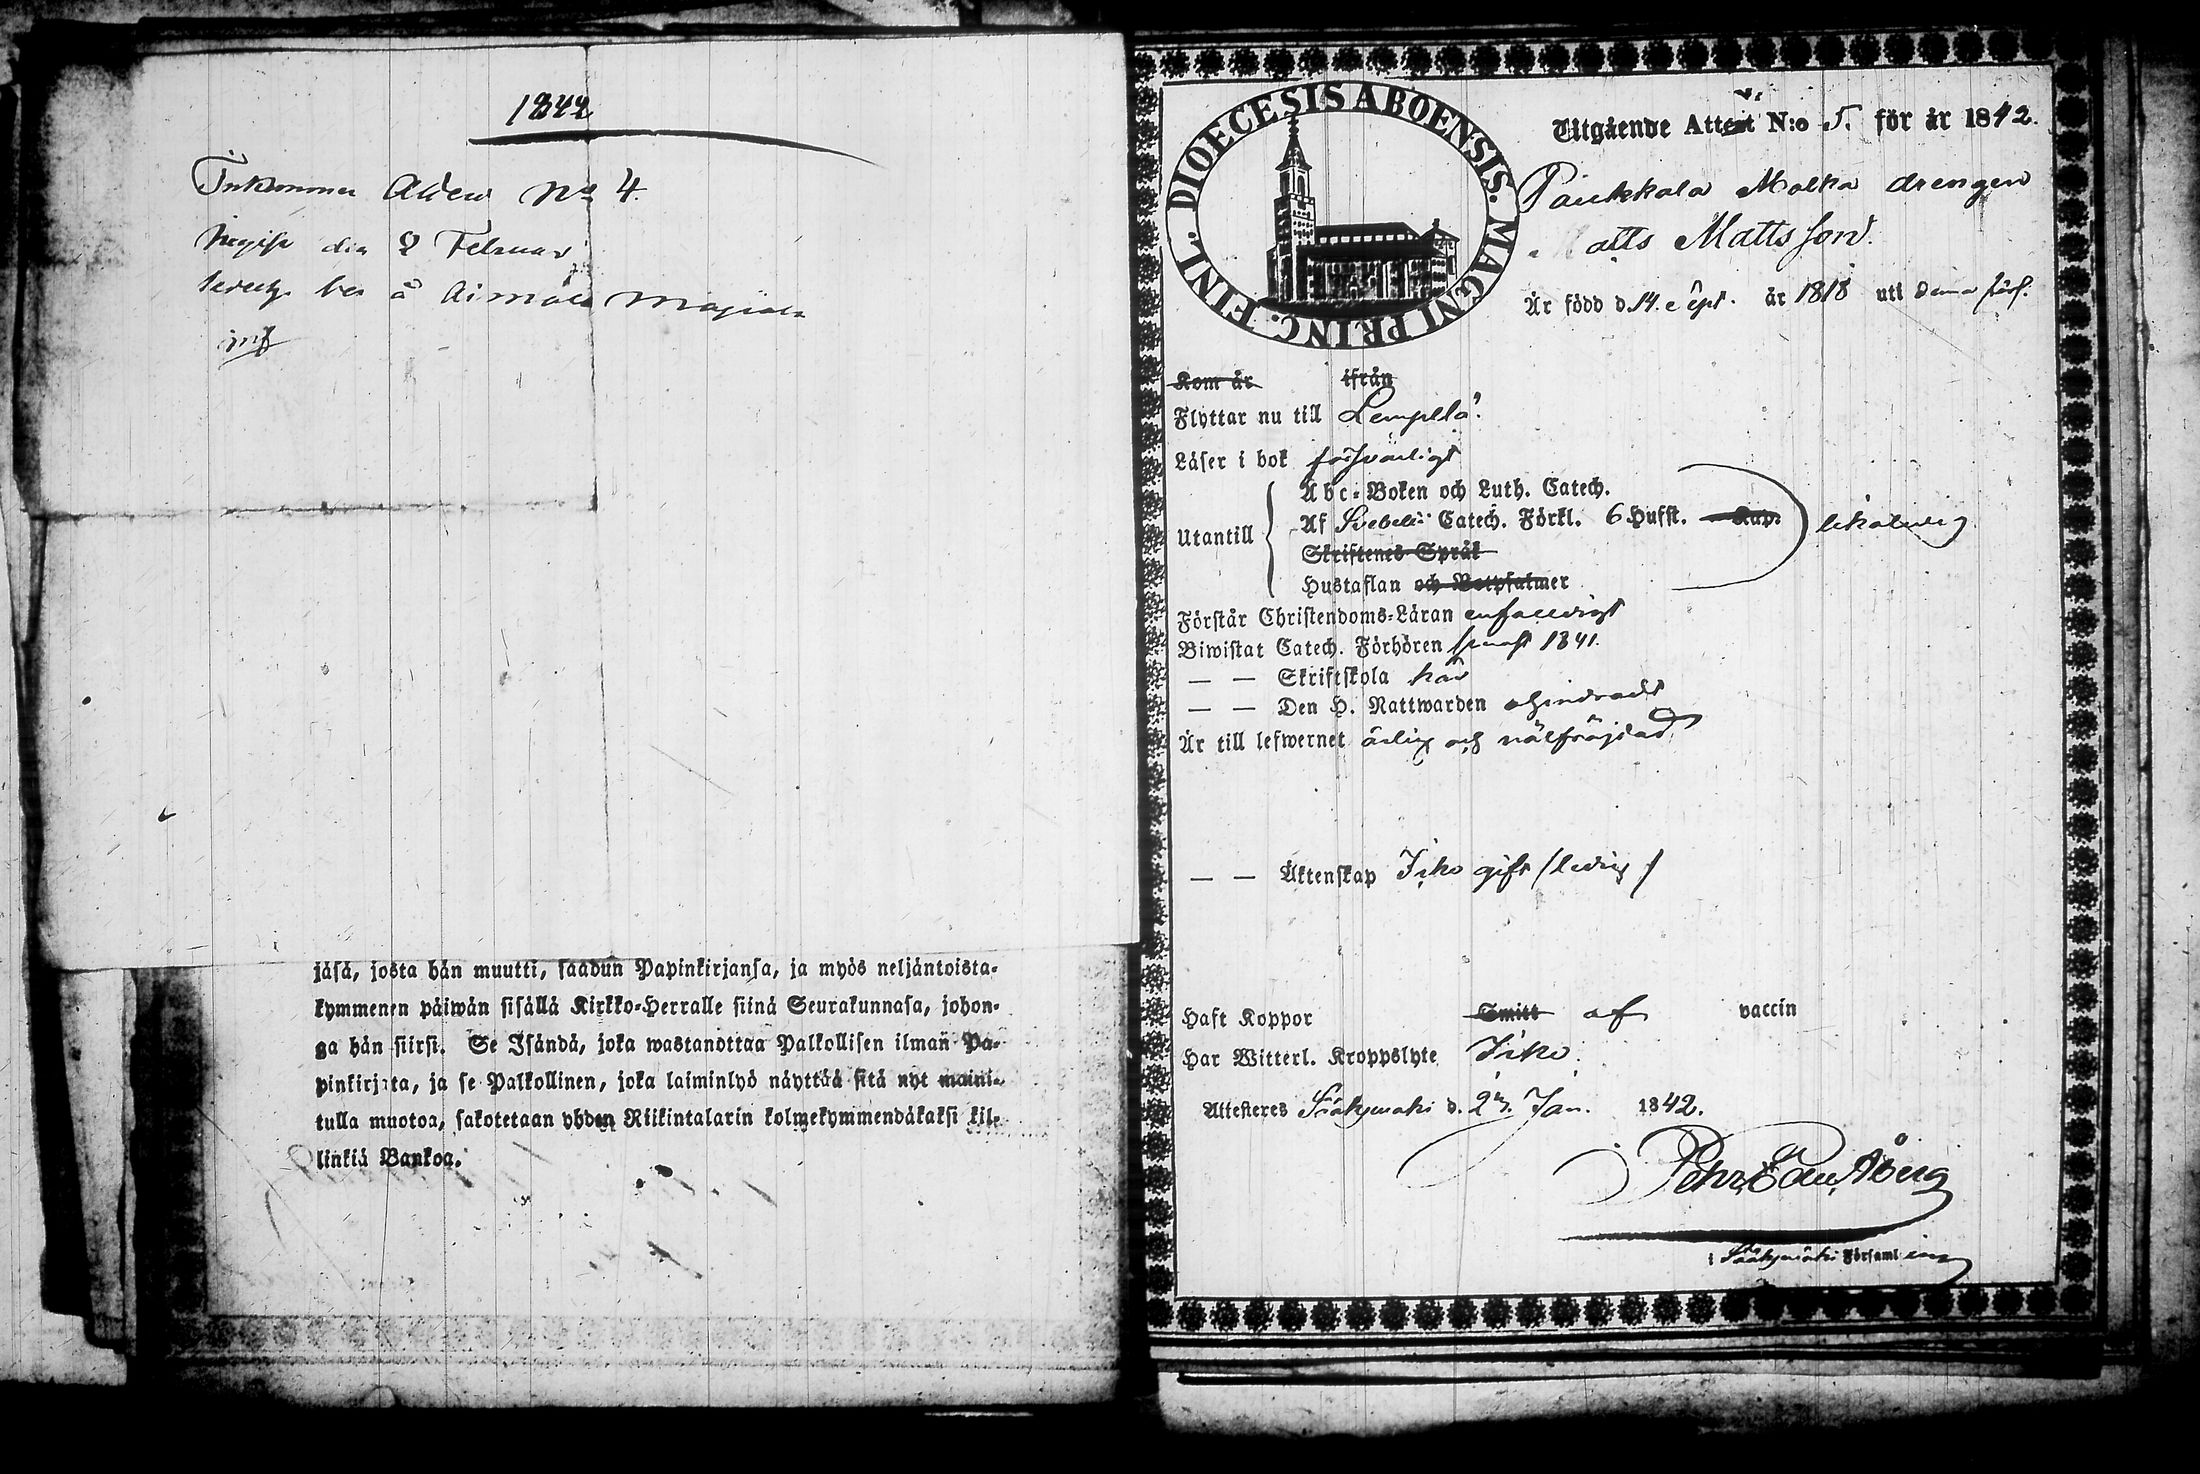 1842
Inkommen Attest No 4.
den 8 Februar
å
inf
jäsä, josta hän muutti, saadun Papinkirjansa, ja myös neljäntoista-
kymmenen päiwän sisällä Kirkko-Herralle siinä Seurakunnasa, johon-
ga hän siirsi. Se Isändä, joka wastanottaa Palkollisen ilman Pa-
pinkirjata, ja se Palkollinen, joka laiminlyö näyttää sitä nyt maini-
tulla muotoa, sakotetaan yhden Riikintalarin kolmekymmendäkaksi kil-
linkiä Bankoa.
DIOECESIS ABOENSIS. MAGNI PRINC. FINL.
Utgående Attest N:o 5. för år 1842.
drengen
Matts Mattsson.
Är född d. 14. Sept. år 1818 uti denna förs.
Kom år ifrån
Flyttar nu till Lempälä.
Läser i bok försvarligt
Utantill
Abc-Boken och Luth. Catech.
Af Svebelii Catech. Förkl. 6 Hufst. Kap.
Skriftenes Språk
Hustaflan och Botpsalmer
likaledes
Förstår Christendoms-Läran enfaldigt
Biwistat Catech. Förhören senast 1841.
— — Skriftskola här
— — Den H. Nattwarden ohindradt
Är till lefwernet ärlig och välfräjdad
— — Äktenskap Icke gift (ledig)
Haft Koppor Smitt af vaccin
Har Witterl. Kroppslyte Icke.
Attesteras Sääksmäki d. 27. Jan. 1842.
Pehr
i Sääksmäki Församling